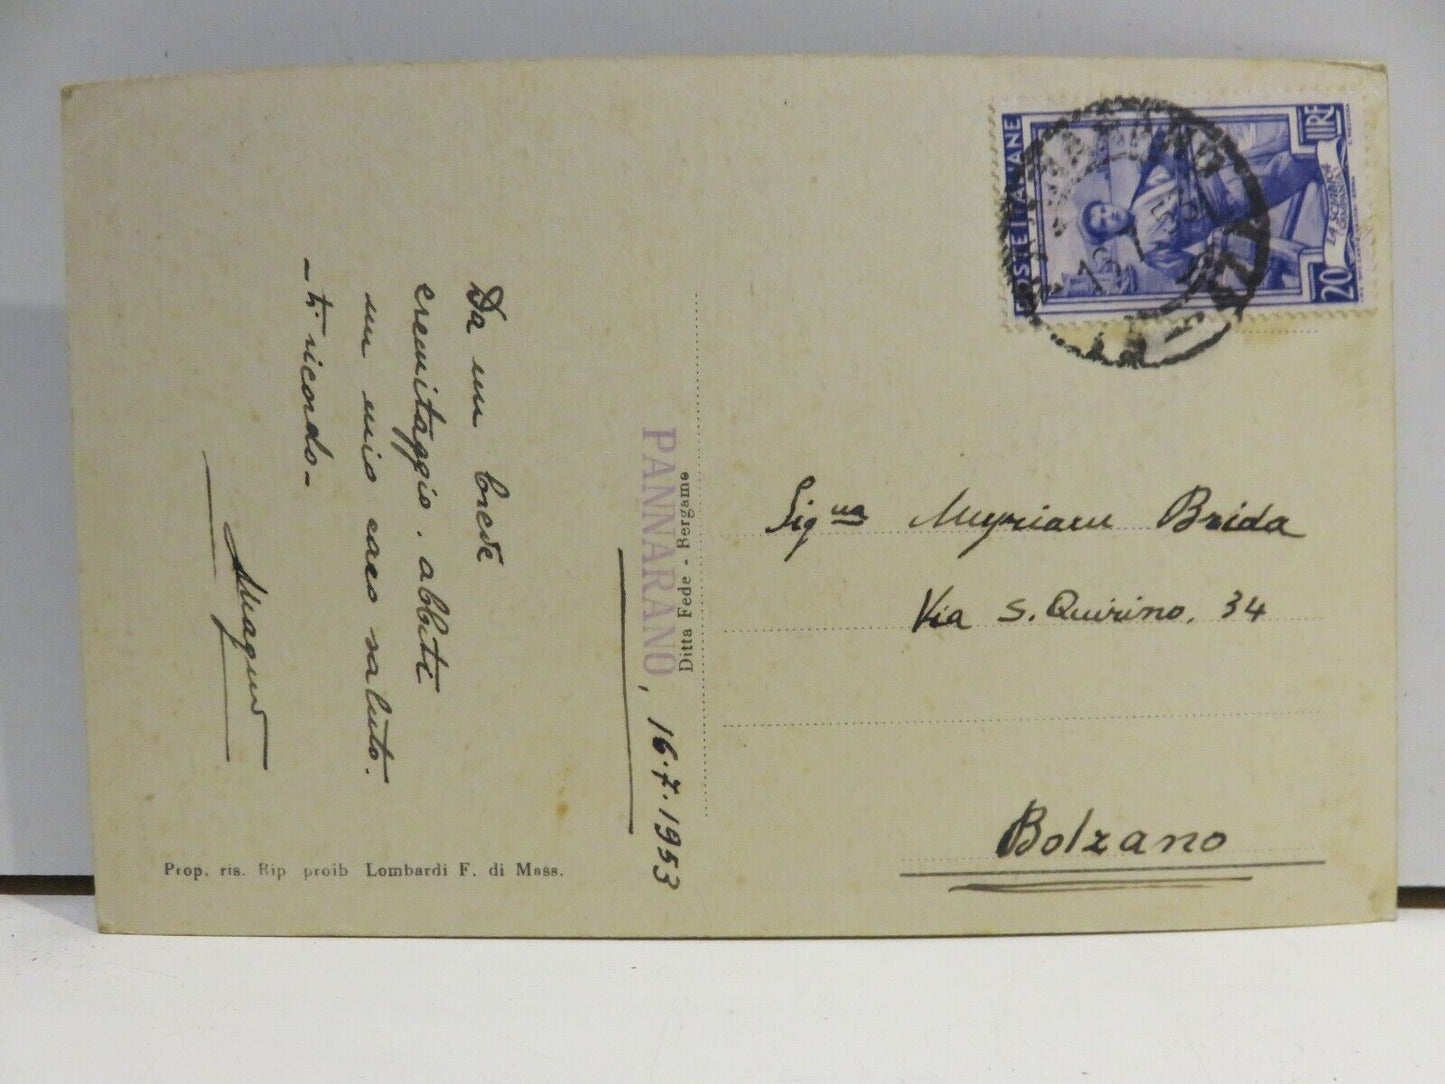 Da un breve
eremitaggio, abbiti
un mio caro saluto.
- ti ricordo -
Prop. ris. Rip proib Lombardi F. di Mass.
PANNARANO, 16.7.1953
Ditta Fede - Bergamo
POSTE ITALIANE
LIRE
20
Sig.na Myriam Brida
Via S. Quirino, 34
Bolzano